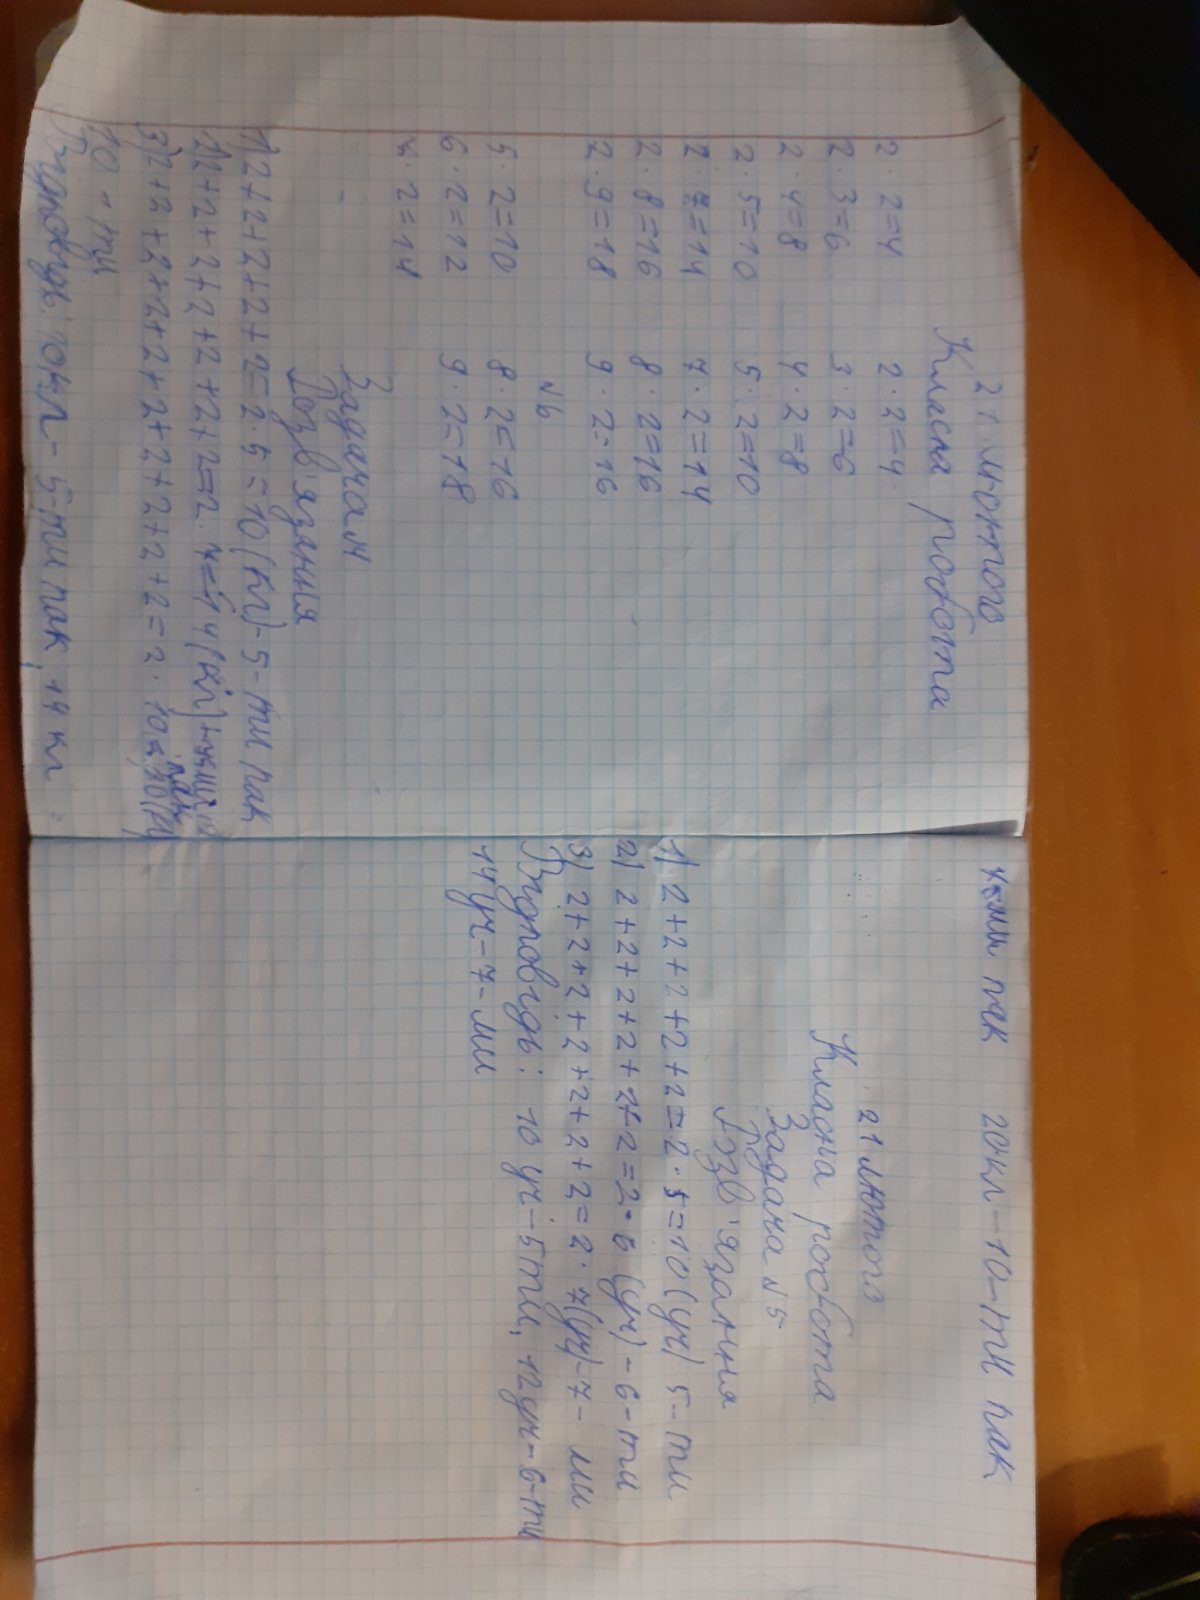 21 лютого
Класна робота
2 · 2 = 4 2 · 2 = 4.
2 · 3 = 6 3 · 2 = 6
2 · 4 = 8 4 · 2 = 8
2 · 5 = 10 5 · 2 = 10
2 · 7 = 14 7 · 2 = 14
2 · 8 = 16 8 · 2 = 16
2 · 9 = 18 9 · 2 = 16
№6
5 · 2 = 10 8 · 2 = 16
6 · 2 = 12 9 · 2 = 18
7 · 2 = 14
Задача 4
Розв'язання
1) 2 + 2 + 2 + 2 + 2 = 2 · 5 = 10 (кл) - 5-ти пак
2 + 2 + 2 + 2 + 2 + 2 + 2 = 2 · 7 = 14 (кл)
3) 2 + 2 + 2 + 2 + 2 + 2 + 2 + 2 + 2 + 2 = 2 · 10 =
10 - ти
Відповідь: 10 кл - 5-ти пак, 14 кл
7-ми пак 20 кл - 10-ти пак
21 лютого
Класна робота
Задача №5
Розв'язання
1) 2 + 2 + 2 + 2 + 2 = 2 · 5 = 10 (уч) 5-ти
2) 2 + 2 + 2 + 2 + 2 + 2 = 2 · 6 (уч) - 6-ти
3) 2 + 2 + 2 + 2 + 2 + 2 + 2 = 2 · 7 (уч) - 7-ми
Відповідь: 10 уч - 5ти, 12 уч - 6-ти
14 уч - 7-ми